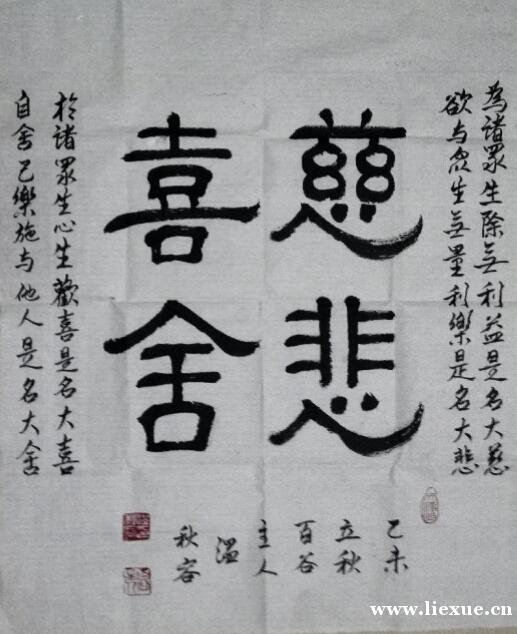 為諸眾生除無利益是名大慈
欲与众生無量利樂是名大悲
慈悲
喜舍
於諸眾生心生歡喜是名大喜
自舍己樂施与他人是名大舍
乙未
立秋
百谷
主人
温
秋容
www.liexue.cn